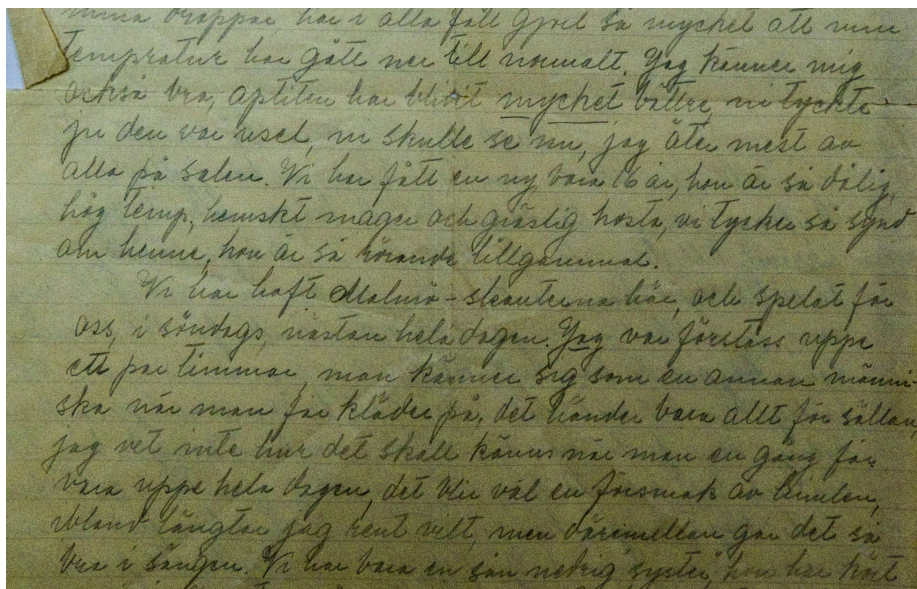 mina droppar har i alla fall gjort så mycket att min
tempratur har gått ner till normalt. Jag känner mig
också bra, aptiten har blivit mycket bättre, ni tyckte
ju den var usel, ni skulle se nu, jag äter mest av
alla på salen. Vi har fått en ny bara 16 år, hon är så dålig,
hög temp, hemskt mager och gräslig hosta, vi tycker så synd
om henne, hon är så rörande lillgammal.
Vi har haft Malmö-skouterna här, och spelat för
oss, i söndags, nästan hela dagen. Jag var förståss uppe
ett par timmar, man känner sig som en annan männi-
ska när man får kläder på, det händer bara allt för sällan,
jag vet inte hur det skall kännas när man en gång får
vara uppe hela dagen, det blir väl en försmak av himlen,
ibland längtar jag rent vilt, men däremellan går det så
bra i sängen. Vi har bara en sån syster, hon har kört